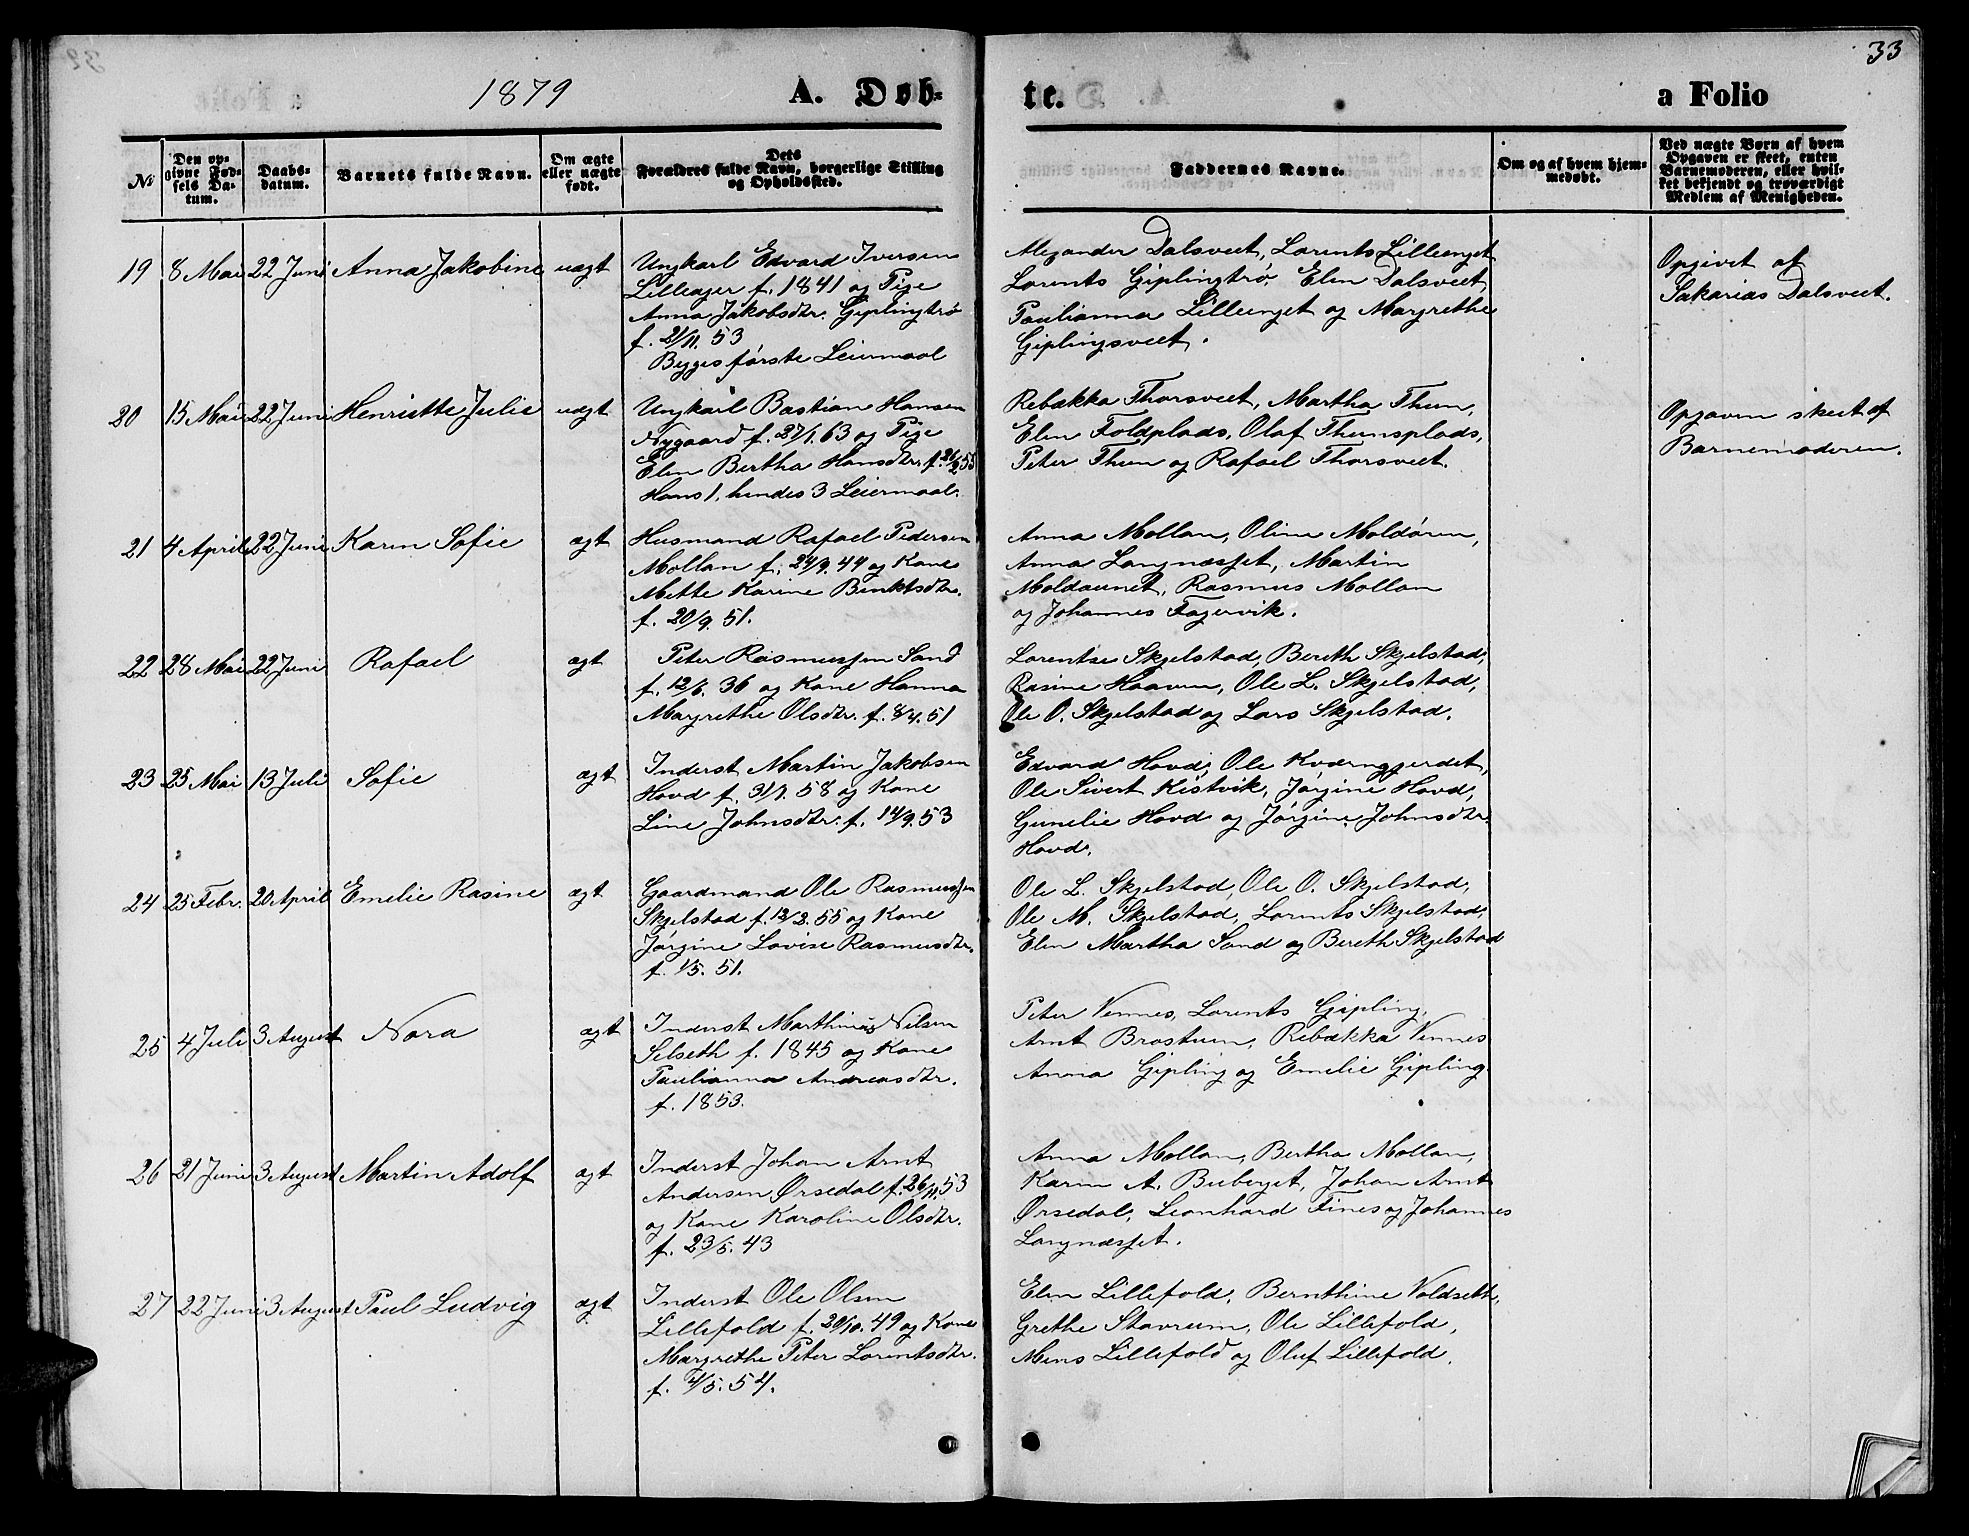 33
1879 A. Døb- te. a Folio
No
Den opgivne Fødsels Datum.
Daabsdatum.
Barnets fulde Navn.
Om ægte eller uægte født.
Dets Forældres fulde Navn, borgerlige Stilling og Opholdssted.
Faddernes Navne.
Om og af hvem hjemmedøbt.
Ved uægte Børn af hvem Opgaven er skeet, enten Barnemoderen, eller hvilket bekjendt og troværdigt Medlem af Menigheden.
19 8 Mai 22 Juni Anna Jakobine uægt
Ungkarl Edvard Iversen
Lilleager f. 1841 og Pige
Anna Jakobsdtr. Giplingtrø
f. 21/11. 53
Begges første Leiermaal
Alexander Dalsveet, Lorents Lilleenget
Lorents Giplingtrø, Elen Dalsveet,
Paulianna Lilleenget og Margrethe
Giplingsveet.
Opgivet af
Sakarias Dalsveet.
20 15 Mai 22 Juni Henriette Julie uægt
Ungkarl Bastian Hansen
Nygaard f. 27/1. 63 og Pige
Elen Bertha Hansdtr. f. 26/2 55
Hans 1, hendes 3 Leiermaal.
Rebækka Thorsveet, Martha Thun,
Elen Foldplads, Olaf Thunsplads,
Peter Thun og Rafael Thorsveet.
Opgaven skeet af
Barnemoderen.
21 4 April 22 Juni Karen Sofie ægt
Husmand Rafael Pedersen
Mollan f. 24/9. 44 og Kone
Mette Karine Benktsdtr.
f. 20/9. 51.
Anna Mollan, Oline Moldøren,
Anna Langnæsset, Martin
Moldaunet, Rasmus Mollan
og Johannes Fagervik.
22 28 Mai 22 Juni Rafael ægt
Peter Rasmussen Sand
f. 12/6. 36 og Kone Hanna
Margrethe Olsdtr. f. 8/4. 51
Lorentse Skjelstad, Bereth Skjelstad,
Rasine Haaven, Ole L. Skjelstad,
Ole O. Skjelstad og Lars Skjelstad.
23 25 Mai 13 Juli Sofie ægt
Inderst Martin Jakobsen
Hovd f. 31/7. 58 og Kone
Line Johnsdtr. f. 14/9. 53
Edvard Hovd, Ole Kværngjerdet,
Ole Sivert Kistvik, Jørgine Hovd,
Gunelie Hovd og Jørgine Johnsdtr.
Hovd.
24 25 Febr. 20 April Emelie Rasine ægt
Gaardmand Ole Rasmussen
Skjelstad f. 12/2. 55 og Kone
Jørgine Lovise Rasmusdtr.
f. 1/5. 51.
Ole L. Skjelstad, Ole O. Skjelstad,
Ole M. Skjelstad, Lorents Skjelstad,
Elen Martha Sand og Bereth Skjelstad
25 4 Juli 3 August Nora ægt
Inderst Marthinus Nilsen
Selseth f. 1845 og Kone
Paulianna Andreasdtr.
f. 1853.
Peter Vennes, Lorents Gipling,
Arnt Brostuen, Rebækka Vennes
Anna Gipling og Emelie Gipling
26 21 Juni 3 August Martin Adolf ægt
Inderst Johan Arnt
Andersen Ørsedal f. 26/11. 53
og Kone Karoline Olsdtr.
f. 23/5. 43
Anna Mollan, Bertha Mollan,
Karen A. Buberget, Johan Arnt
Ørsedal, Leonhard Fines og Johannes
Langnæsset.
27 22 Juni 3 August Paul Ludvig ægt
Inderst Ole Olsen
Lillefold f. 20/10. 49 og Kone
Margrethe Peter Lorentsdtr.
f. 4/5. 54.
Elen Lillefold, Bernthine Voldseth,
Grethe Stavrum, Ole Lillefold,
Mens Lillefold og Oluf Lillefold.